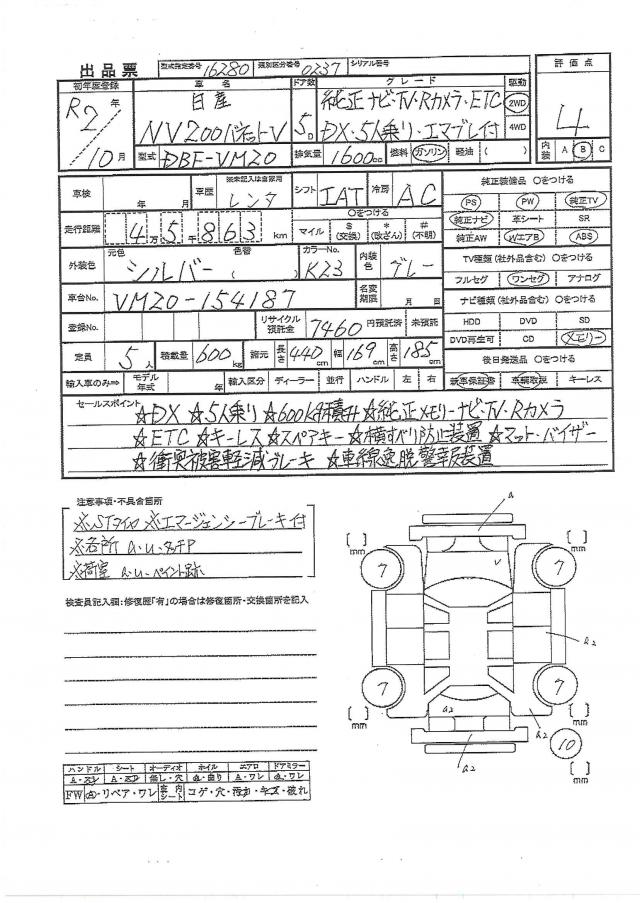 出品票 型式指定番号 16280 類別区分番号 0237 シリアル番号
初年度登録 車名 ドア数 グレード 駆動 評価点
R2年 日産 5D 純正ナビ・TV・Rカメラ・ETC 2WD 4
10月 NV200バネットV DX・5人乗り・エマブレ付 4WD
型式 DBF-VM20 排気量 1600cc 燃料 ガソリン・軽油・( ) 内装 A B C
車検 年 月 車歴 ※未記入は自家用 レンタ シフト IAT 冷房 AC 純正装備品 〇をつける
PS PW 純正TV
走行距離 4万5千863km 〇をつける マイル $(交換) *(改ざん) #(不明) 純正ナビ 革シート SR
純正AW WエアB ABS
外装色 元色 シルバー 色替 ( ) カラーNo. K23 内装色 グレー TV種類(社外品含む)〇をつける
フルセグ ワンセグ アナログ
車台No. VM20-154187 名変期限 月 日 ナビ種類(社外品含む)〇をつける
登録No. リサイクル預託金 7460円預託済 未預託 HDD DVD SD
DVD再生可 CD メモリー
定員 5人 積載量 600kg 諸元 長さ 440cm 幅 169cm 高さ 185cm 後日発送品 〇をつける
輸入車のみ⇒ モデル年式 年 輸入区分 ディーラー 並行 ハンドル 左 右 新車保証書 車輌取説 キーレス
セールスポイント ☆DX ☆5人乗り ☆600kg積み ☆純正メモリーナビ・TV・Rカメラ
☆ETC ☆キーレス ☆スペアキー ☆横すべり防止装置 ☆マット・バイザー
☆衝突被害軽減ブレーキ ☆車線逸脱警報装置
注意事項・不具合箇所
※STタイヤ ※エマージェンシーブレーキ付
※各所 a.u.タッチP
※荷室 a.u.ペイント跡
検査員記入欄:修復歴「有」の場合は修復箇所・交換箇所を記入
a
[ ] mm [ ] mm
7 7
v
a2
7 7
[ ] mm [ ] mm
a2 a2
a2 10
ハンドル シート オーディオ ホイル エアロ ドアミラー
A・スレ A・スレ 無し・穴 a・曲り A・ワレ a・ワレ
FW a・リペア・ワレ 室内シート コゲ・穴・汚れ・キズ・破れ